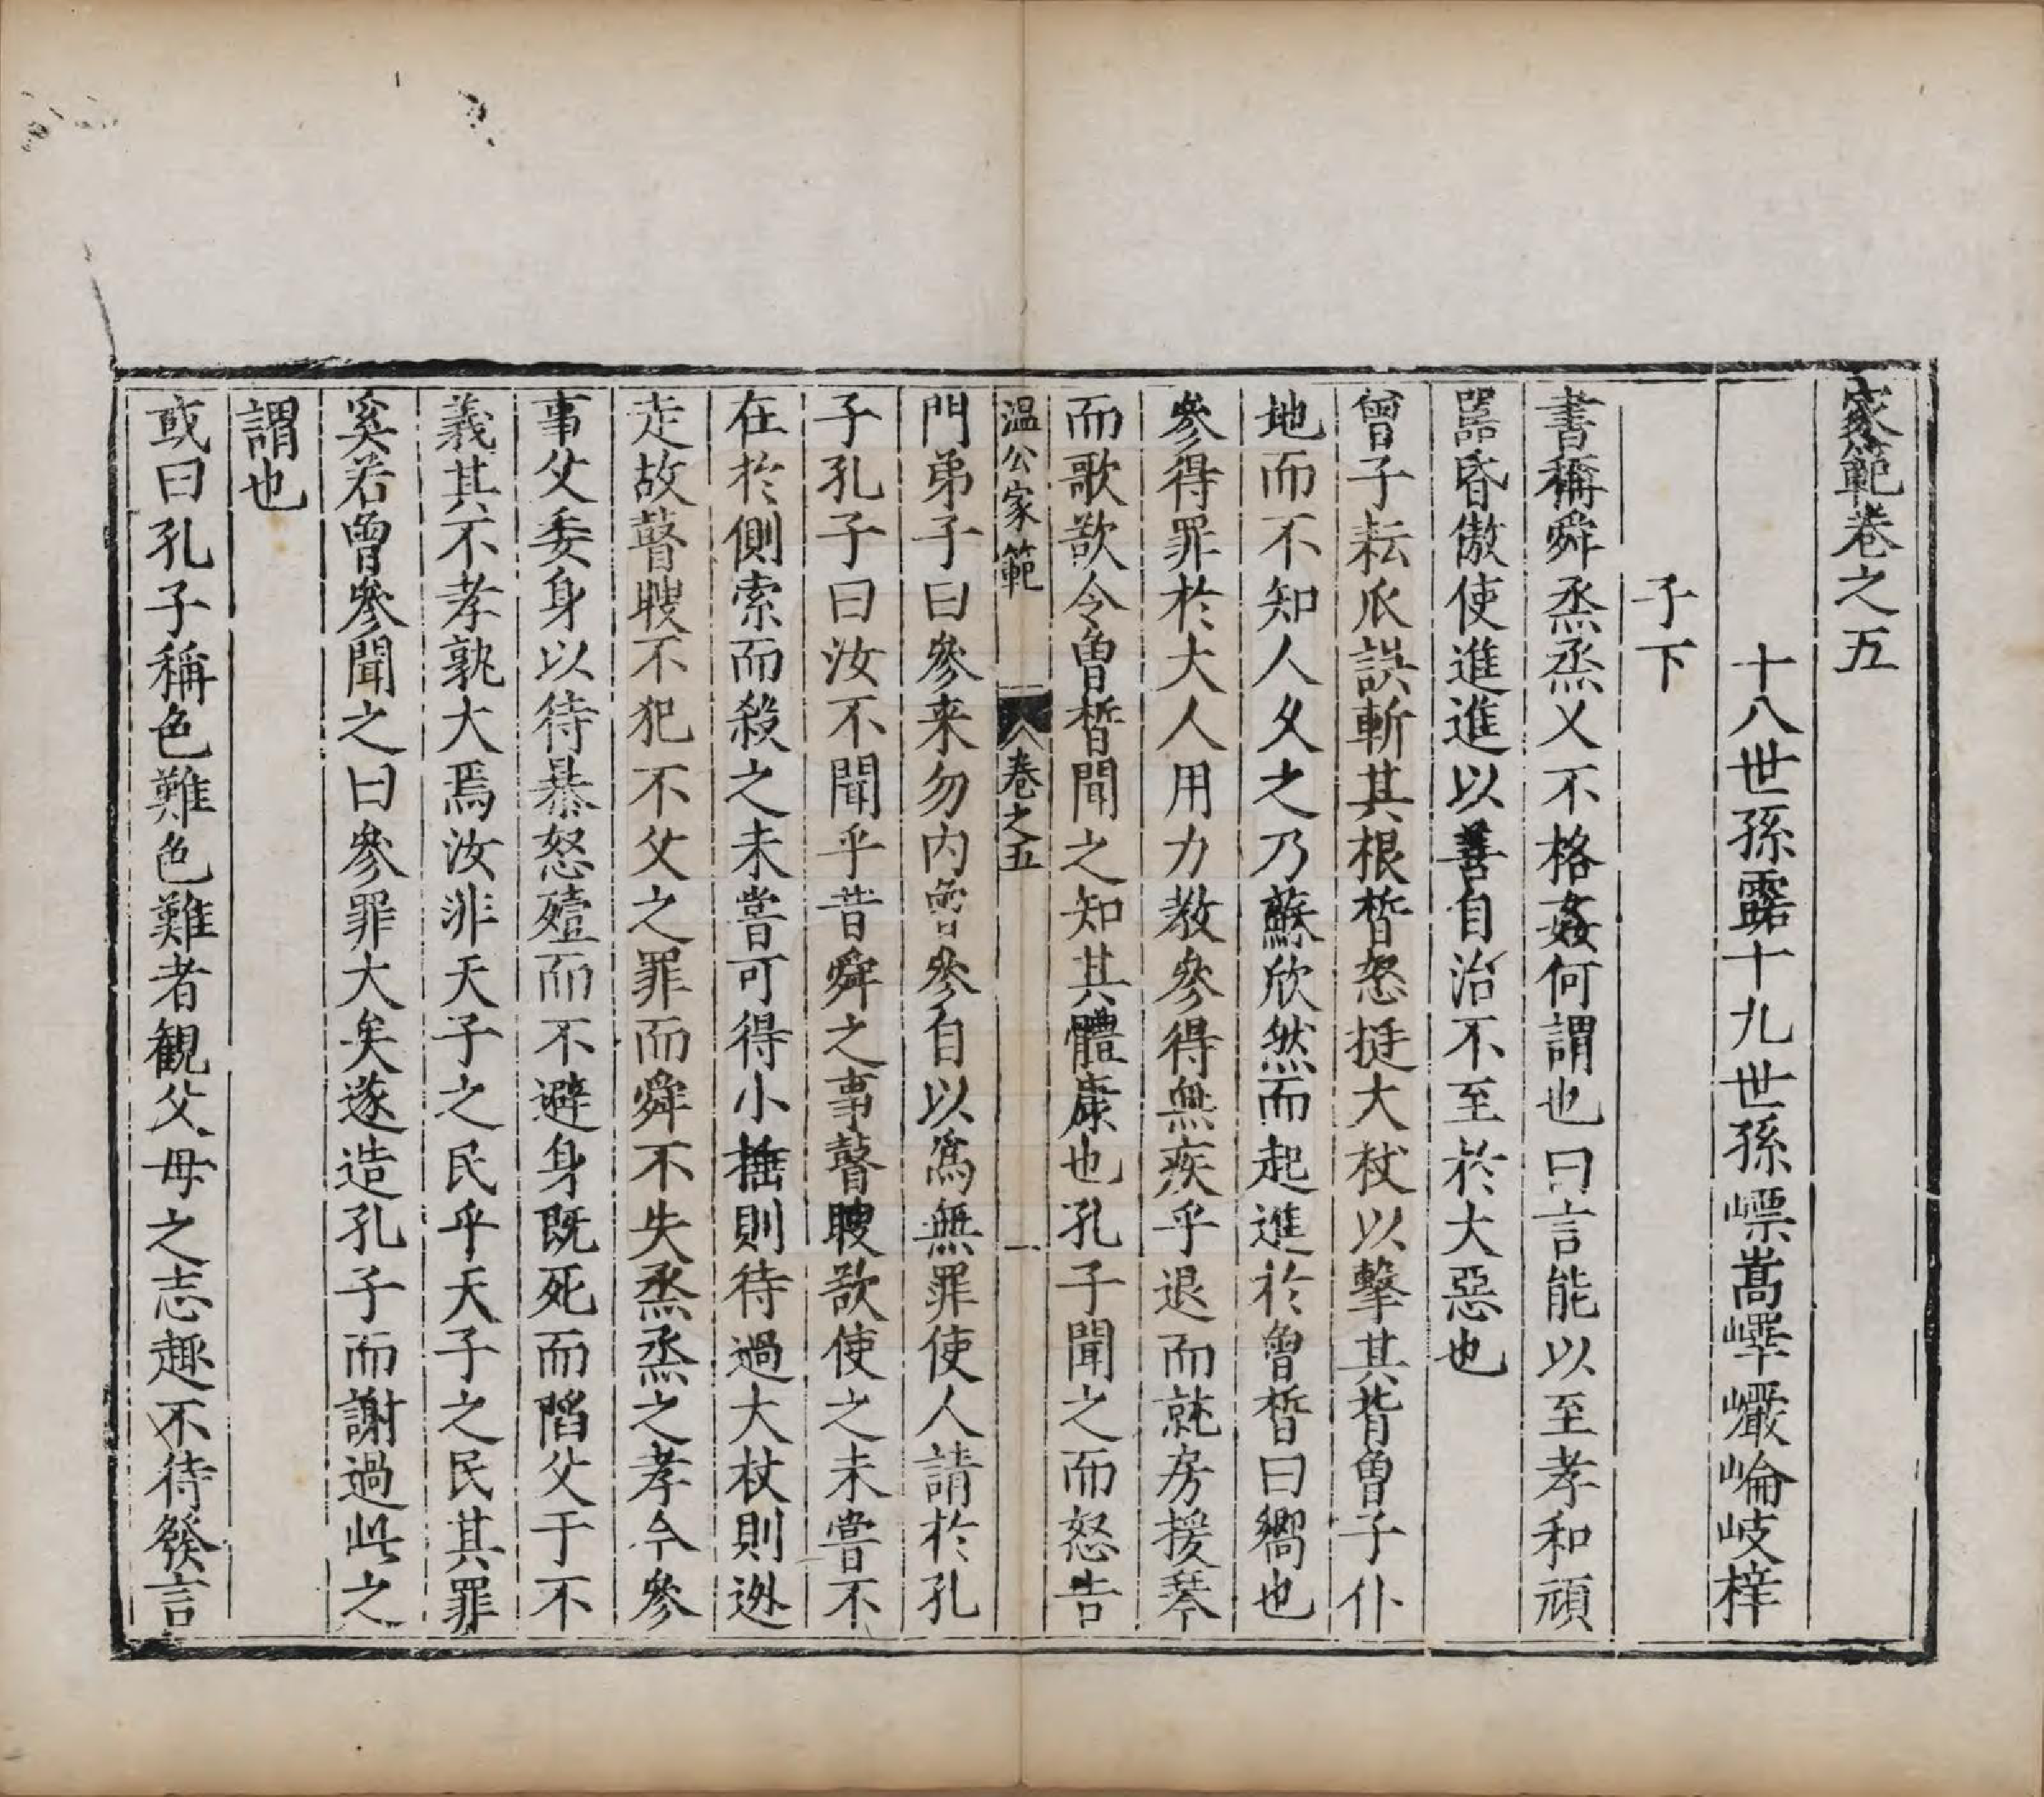 家範卷之五
十八世孫露十九世孫嶫嵩嶧巖崘岐梓
子下
書稱舜烝烝乂不格姦何謂也曰言能以至孝和頑
嚚昏傲使進進以善自治不至於大惡也
曾子耘瓜誤斬其根晳怒挺大杖以擊其背曾子仆
地而不知人久之乃蘇欣然而起進於曾晳曰嚮也
參得罪於大人用力教參得無疾乎退而就房援琴
而歌欲令曾晳聞之知其體康也孔子聞之而怒告
温公家範 卷之五 一
門弟子曰參来勿内曾參自以爲無罪使人請於孔
子孔子曰汝不聞乎昔舜之事瞽瞍欲使之未嘗不
在於側索而殺之未嘗可得小捶則待過大杖則迯
走故瞽瞍不犯不父之罪而舜不失烝烝之孝今參
事父委身以待暴怒殪而不避身既死而陷父于不
義其不孝孰大焉汝非天子之民乎天子之民其罪
奚若曾參聞之曰參罪大矣遂造孔子而謝過此之
謂也
或曰孔子稱色難色難者観父母之志趣不待發言